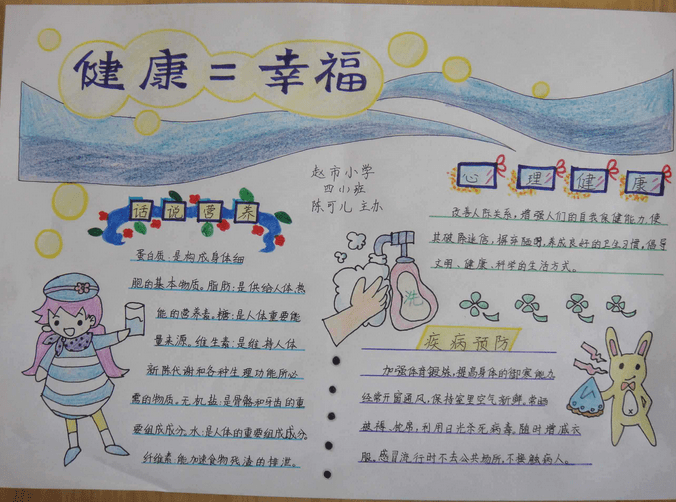 健康=幸福
赵市小学
四(1)班
陈可儿 主办
话说营养
蛋白质:是构成身体细
胞的基本物质。脂肪:是供给人体热
能的营养素。糖:是人体重要能
量来源。维生素:是维持人体
新陈代谢和各种生理功能所必
需的物质。无机盐:是骨骼和牙齿的重
要组成成分。水:是人体的重要组成成分。
纤维素:能加速食物残渣的排泄。
心理健康
改善人际关系,增强人们的自我保健能力,使
其破除迷信,摒弃陋习,养成良好的卫生习惯,倡导
文明、健康、科学的生活方式。
洗
疾病预防
加强体育锻炼,提高身体的御寒能力
经常开窗通风,保持室里空气新鲜。常晒
被褥、枕席,利用日光杀死病毒。随时增减衣
服。感冒流行时不去公共场所,不接触病人。